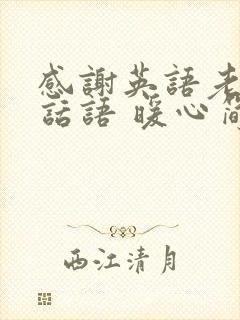 感謝英語老
話語 暖心簡
西江清月